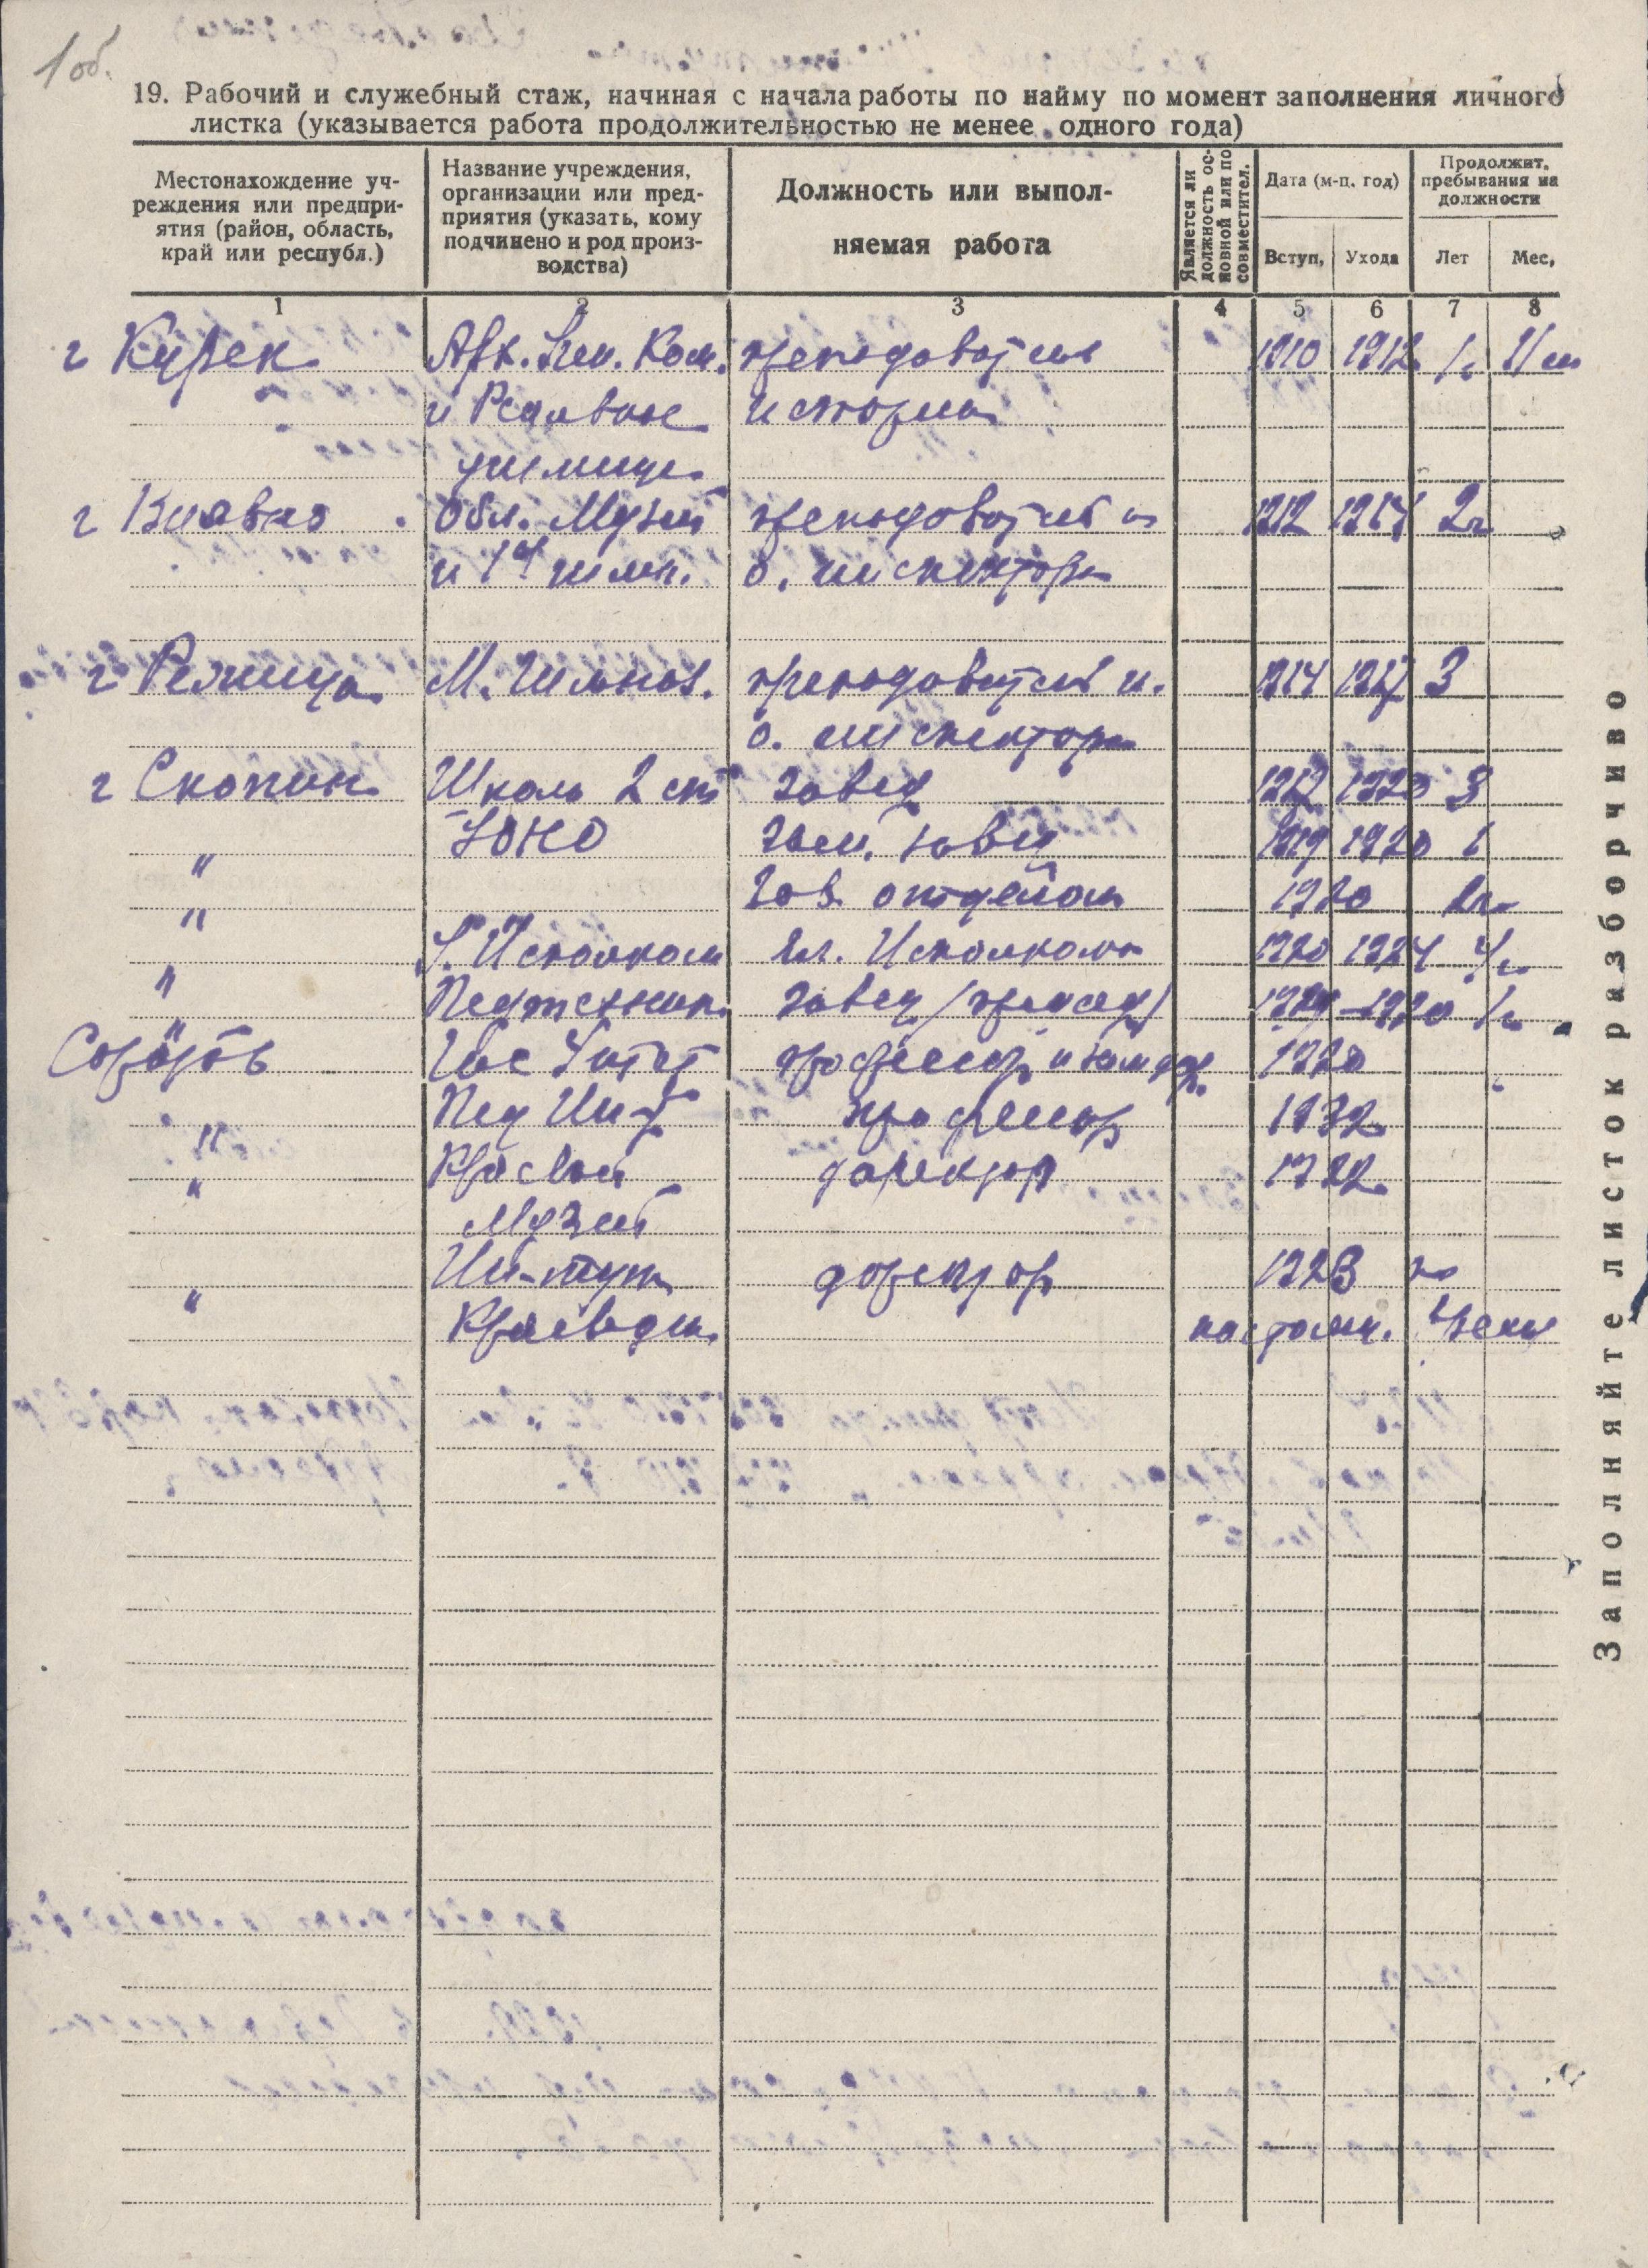 1 об.
19. Рабочий и служебный стаж, начиная с начала работы по найму по момент заполнения личного
листка (указывается работа продолжительностью не менее одного года)
Местонахождение уч-
реждения или предпри-
ятия (район, область,
край или республ.)
Название учреждения,
организации или пред-
приятия (указать, кому
подчинено и род произ-
водства)
Должность или выпол-
няемая работа
Является ли
должность ос-
новной или по
совместител.
Дата (м-ц. год)
Вступ,
Ухода
Продолжит.
пребывания на
должности
Лет
Мес,
1 2 3 4 5 6 7 8
г Курск Арх. Ком. преподаватель 1910 1912
и Реальное истории
училище
г Вильно Обл. Музей преподаватель и 1912 2 г
и 1 гимн. о. инспектора
г Режица М. Гимназ. преподаватель и. 1914 1917 3
о. инспектора
г Скопин Школа 2 ст завед 1917 1920 3
" УОНО Зам. завед 1919 1920 1
" Зав. отделом 1920
" У. Исполком Чл. Исполкома 1920 1924
" Педтехник. завед 1920
Саратов Гос Ун-т профессор 1920
" Пед Инст профессор 1932
" Краевой директор
Музей
" Ин-тут директор 1923
Краеведен. настоящ. время
Заполняйте листок разборчиво